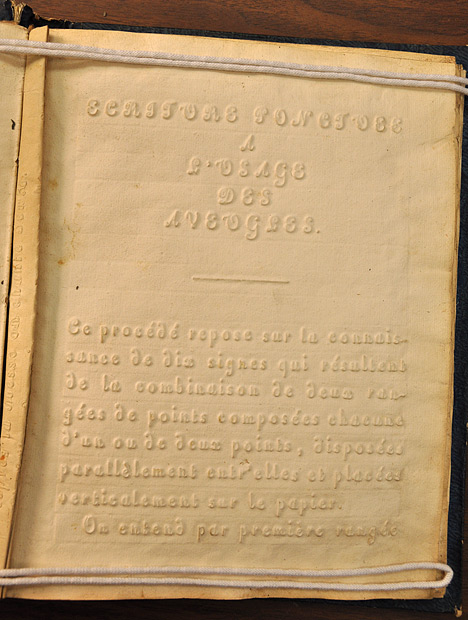 ECRITURE PONCTUEE
A
L'USAGE
DES
AVEUGLES.
Ce procédé repose sur la connais-
sance de dix signes qui résultent
de la combinaison de deux ran-
gées de points composées chacune
d'un ou de deux points, disposées
parallèlement entr'elles et placées
verticalement sur le papier.
On entend par première rangée